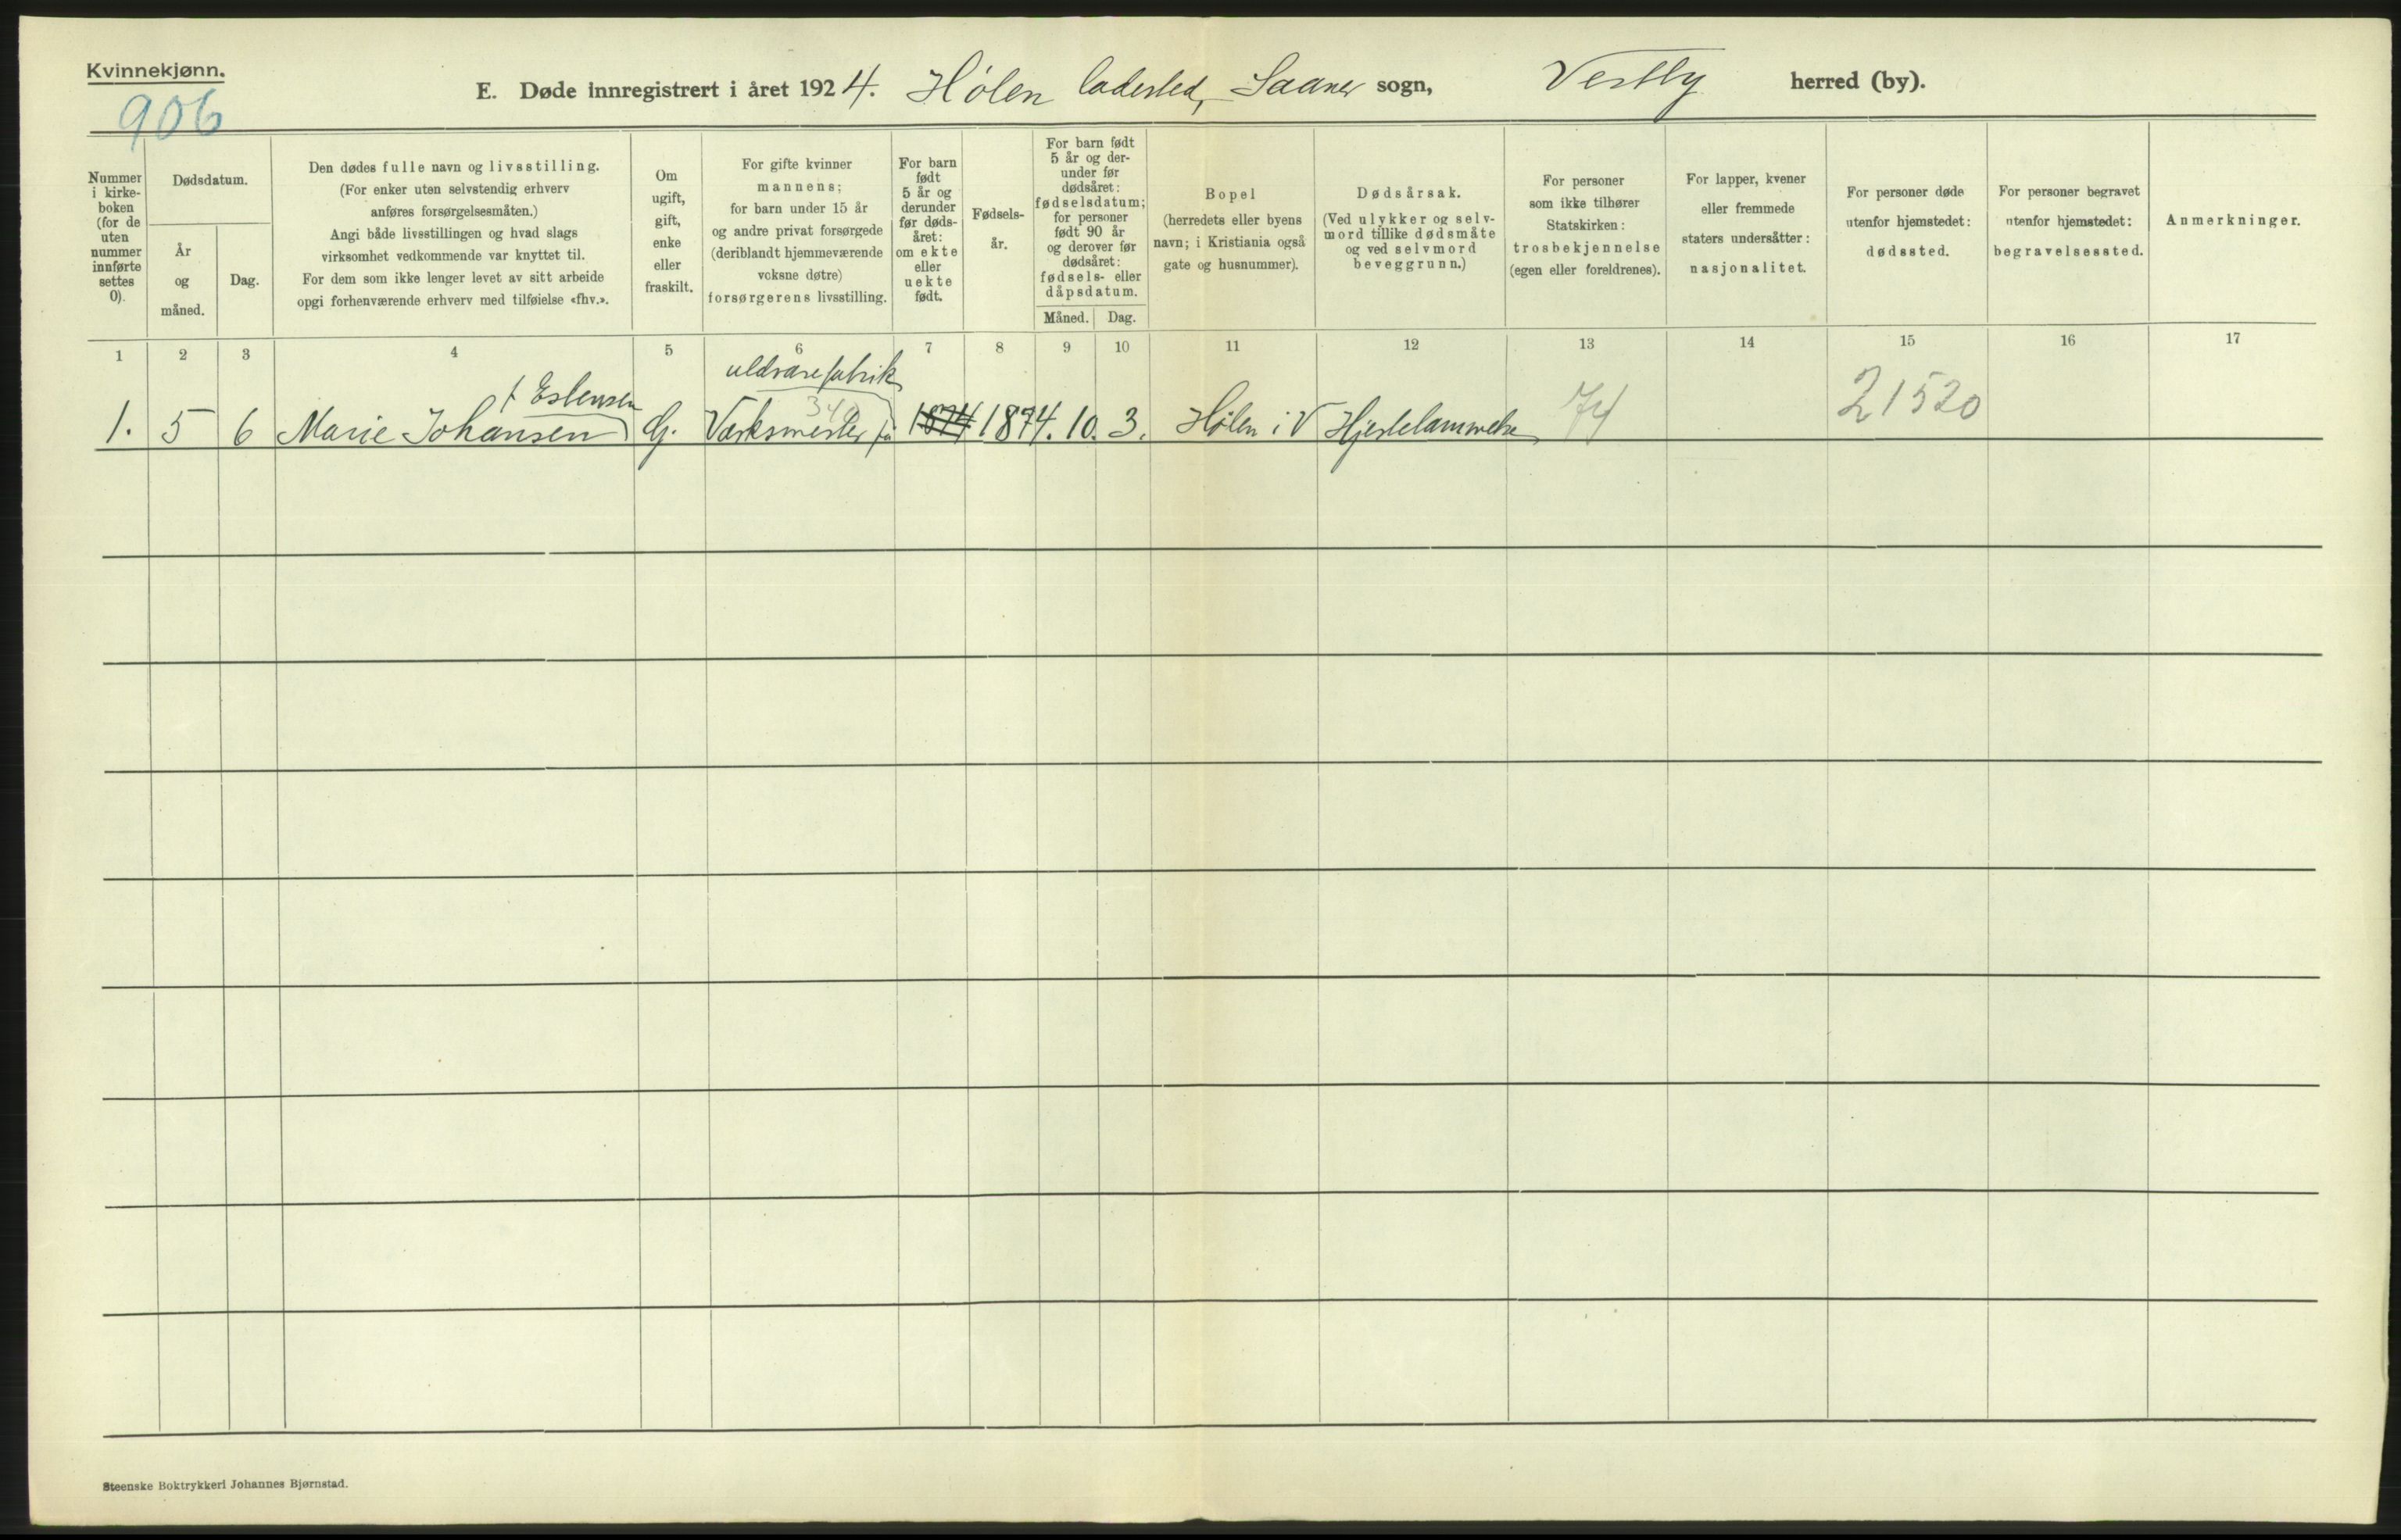 Kvinnekjønn.
906
E. Døde innregistrert i året 1924. Hølen ladested, Saaner sogn, Vestby herred (by).
Nummer
i kirke-
boken
(for de
uten
nummer
innførte
settes
0).
Dødsdatum.
År
og
måned.
Dag.
Den dødes fulle navn og livsstilling.
(For enker uten selvstendig erhverv
anføres forsørgelsesmåten.)
Angi både livsstillingen og hvad slags
virksomhet vedkommende var knyttet til.
For dem som ikke lenger levet av sitt arbeide
opgi forhenværende erhverv med tilføielse «fhv.».
Om
ugift,
gift,
enke
eller
fraskilt.
For gifte kvinner
mannens;
for barn under 15 år
og andre privat forsørgede
(deriblandt hjemmeværende
voksne døtre)
forsørgerens livsstilling.
For barn
født
5 år og
derunder
før døds-
året:
om ekte
eller
uekte
født.
Fødsels-
år.
For barn født
5 år og der-
under før
dødsåret:
fødselsdatum;
for personer
født 90 år
og derover før
dødsåret:
fødsels- eller
dåpsdatum.
Måned. Dag.
Bopel
(herredets eller byens
navn; i Kristiania også
gate og husnummer).
Dødsårsak.
(Ved ulykker og selv-
mord tillike dødsmåte
og ved selvmord
beveggrunn.)
For personer
som ikke tilhører
Statskirken:
trosbekjennelse
(egen eller foreldrenes).
For lapper, kvener
eller fremmede
staters undersåtter:
nasjonalitet.
For personer døde
utenfor hjemstedet:
dødssted.
For personer begravet
utenfor hjemstedet:
begravelsessted.
Anmerkninger.
1 2 3 4 5 6 7 8 9 10 11 12 13 14 15 16 17
f. Eslensen uldvarefabrik
1. 5 6 Marie Johansen G. Værksmester på 340 1874 1874. 10. 3. Hølen i V Hjertelammelse 74 21520
Steenske Boktrykkeri Johannes Bjørnstad.